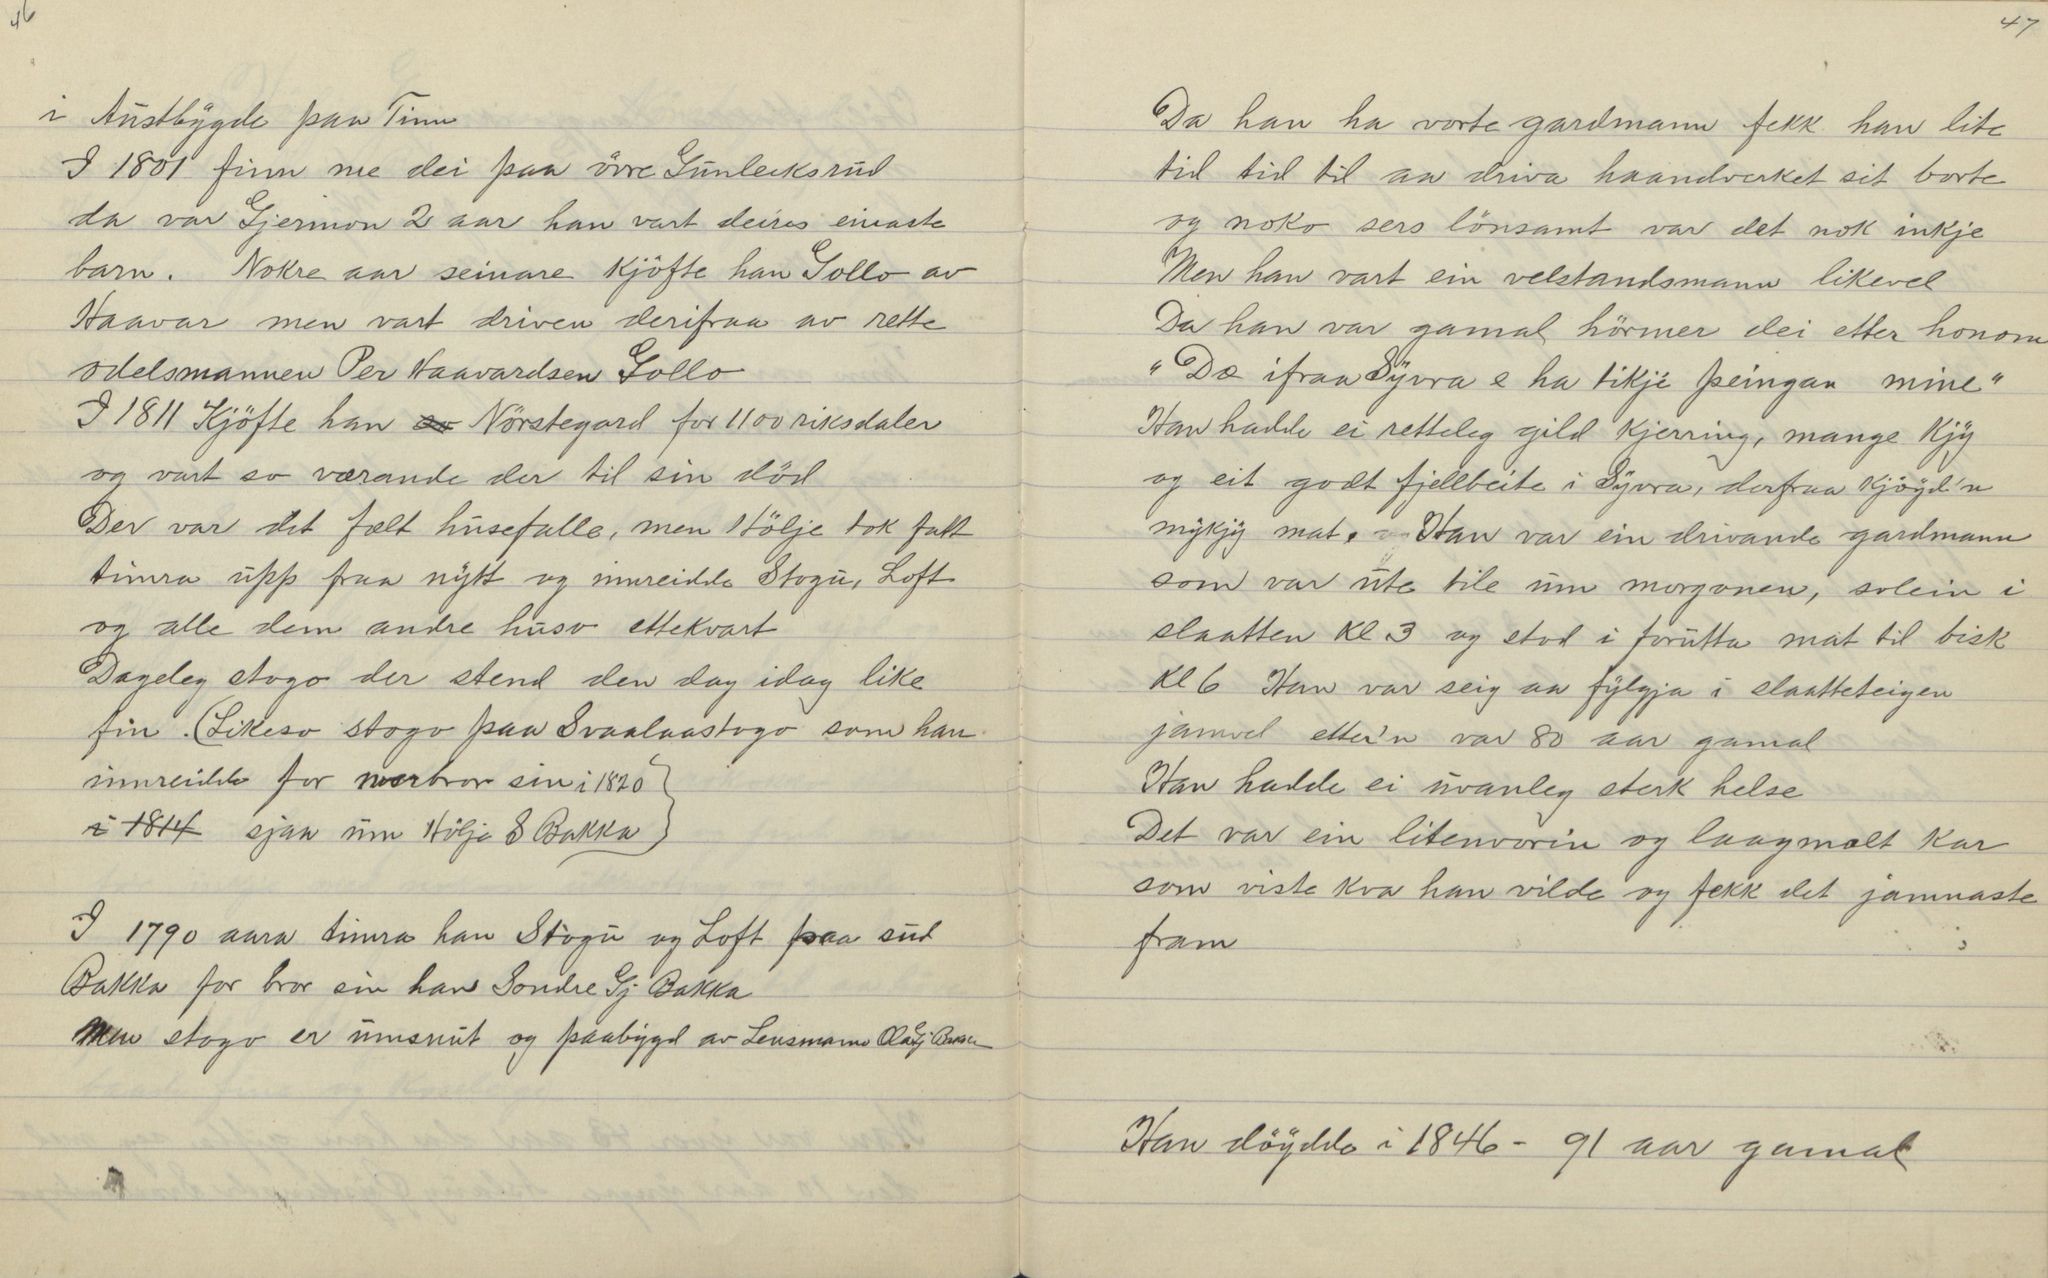 46
i Austbygde paa Tinn
I 1801 finn me dei paa övre Gunleeksrud
da var Gjermon 2 aar han vart deires einaste
barn. Nokre aar seinare Kjöfte han Gollo av
Haavar men vart driven derifraa av rette
odelsmannen Per Haavardsen Gollo
I 1811 Kjöfte han Nörstegard for 1100 riksdaler
og vart so værande der til sin död
Der var det fælt husefalle, men Hölje tok fatt
timra upp fraa nytt og innreidde Stogu, Loft
og alle dem andre huso ettekvart
Dageleg stogo der stend den dag idag like
fin. (Likeso stogo paa Svaalaastogo som han
innreidde for morbror sin i 1820
i 1814 sjaa um Hölje S Bakka)
I 1790 aara timra han Stogu og Loft paa sud
Bakka for bror sin han Sondre Gj Bakka
Men stogo er umsnut og paabygd av Lensmann Ola Gj Bakka
47
Da han ha vorte gardmann fekk han lite
tid tid til aa driva haandverket sit borte
og noko sers lönsamt var det nok inkje
Men han vart ein velstandsmann likevel
Da han var gamal hörmer dei etter honom
"Dæ ifraa Syvra e ha tikje peingan mine"
Han hadde ei retteleg gild Kjerring, mange Kjy
og eit godt fjellbeite i Syvra, derfraa Kjöyd'n
mykjy mat. Han var ein drivande gardmann
som var ute tile um morgonen, solein i
slaatten Kl 3 og stod i forutta mat til bisk
Kl 6 Han var seig aa fylgja i slaatteteigen
jamvel etter'n var 80 aar gamal
Han hadde ei uvanleg sterk helse
Det var ein litenvorin og laagmælt Kar
som viste Kva han vilde og fekk det jamnaste
fram
Han döydde i 1846 - 91 aar gamal